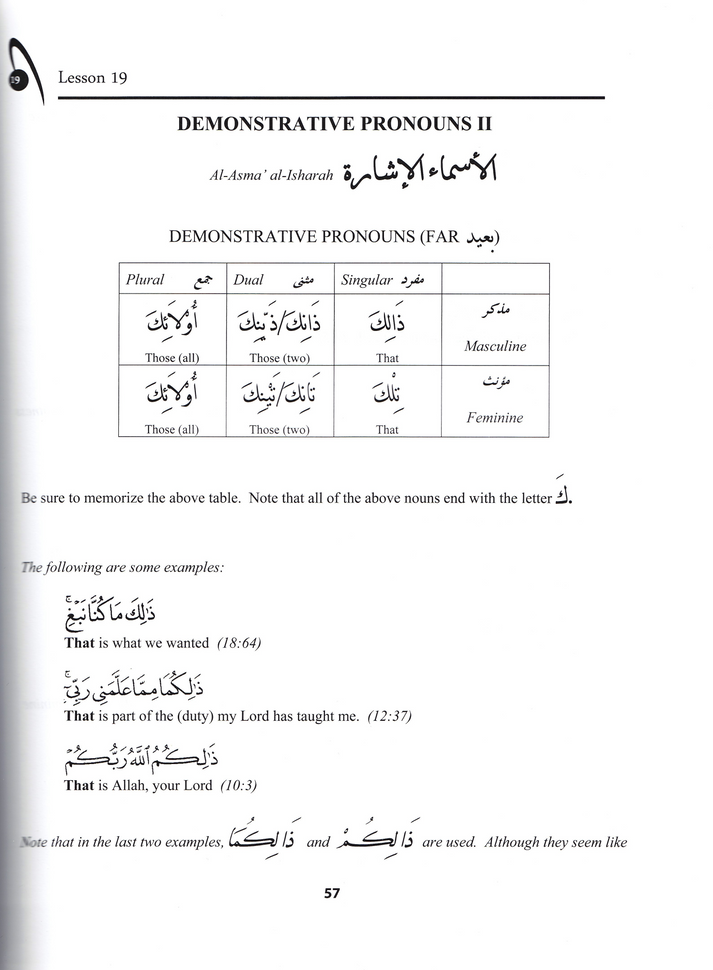 19
Lesson 19
DEMONSTRATIVE PRONOUNS II
Al-Asma’ al-Isharah الأسماء الإشارة
DEMONSTRATIVE PRONOUNS (FAR بعيد)
Plural جمع Dual مثنى Singular مفرد
أُولَائِكَ ذَانِكَ/ذَيْنِكَ ذَالِكَ مذكر
Masculine
Those (all) Those (two) That
أُولَائِكَ تَانِكَ/تَيْنِكَ تِلْكَ مؤنث
Feminine
Those (all) Those (two) That
Be sure to memorize the above table. Note that all of the above nouns end with the letter كَ.
The following are some examples:
ذَٰلِكَ مَا كُنَّا نَبْغِ ۚ
That is what we wanted (18:64)
ذَٰلِكُمَا مِمَّا عَلَّمَنِي رَبِّي ۚ
That is part of the (duty) my Lord has taught me. (12:37)
ذَٰلِكُمُ اللَّهُ رَبُّكُمْ
That is Allah, your Lord (10:3)
Note that in the last two examples, ذَالِكُمَا and ذَالِكُمْ are used. Although they seem like
57